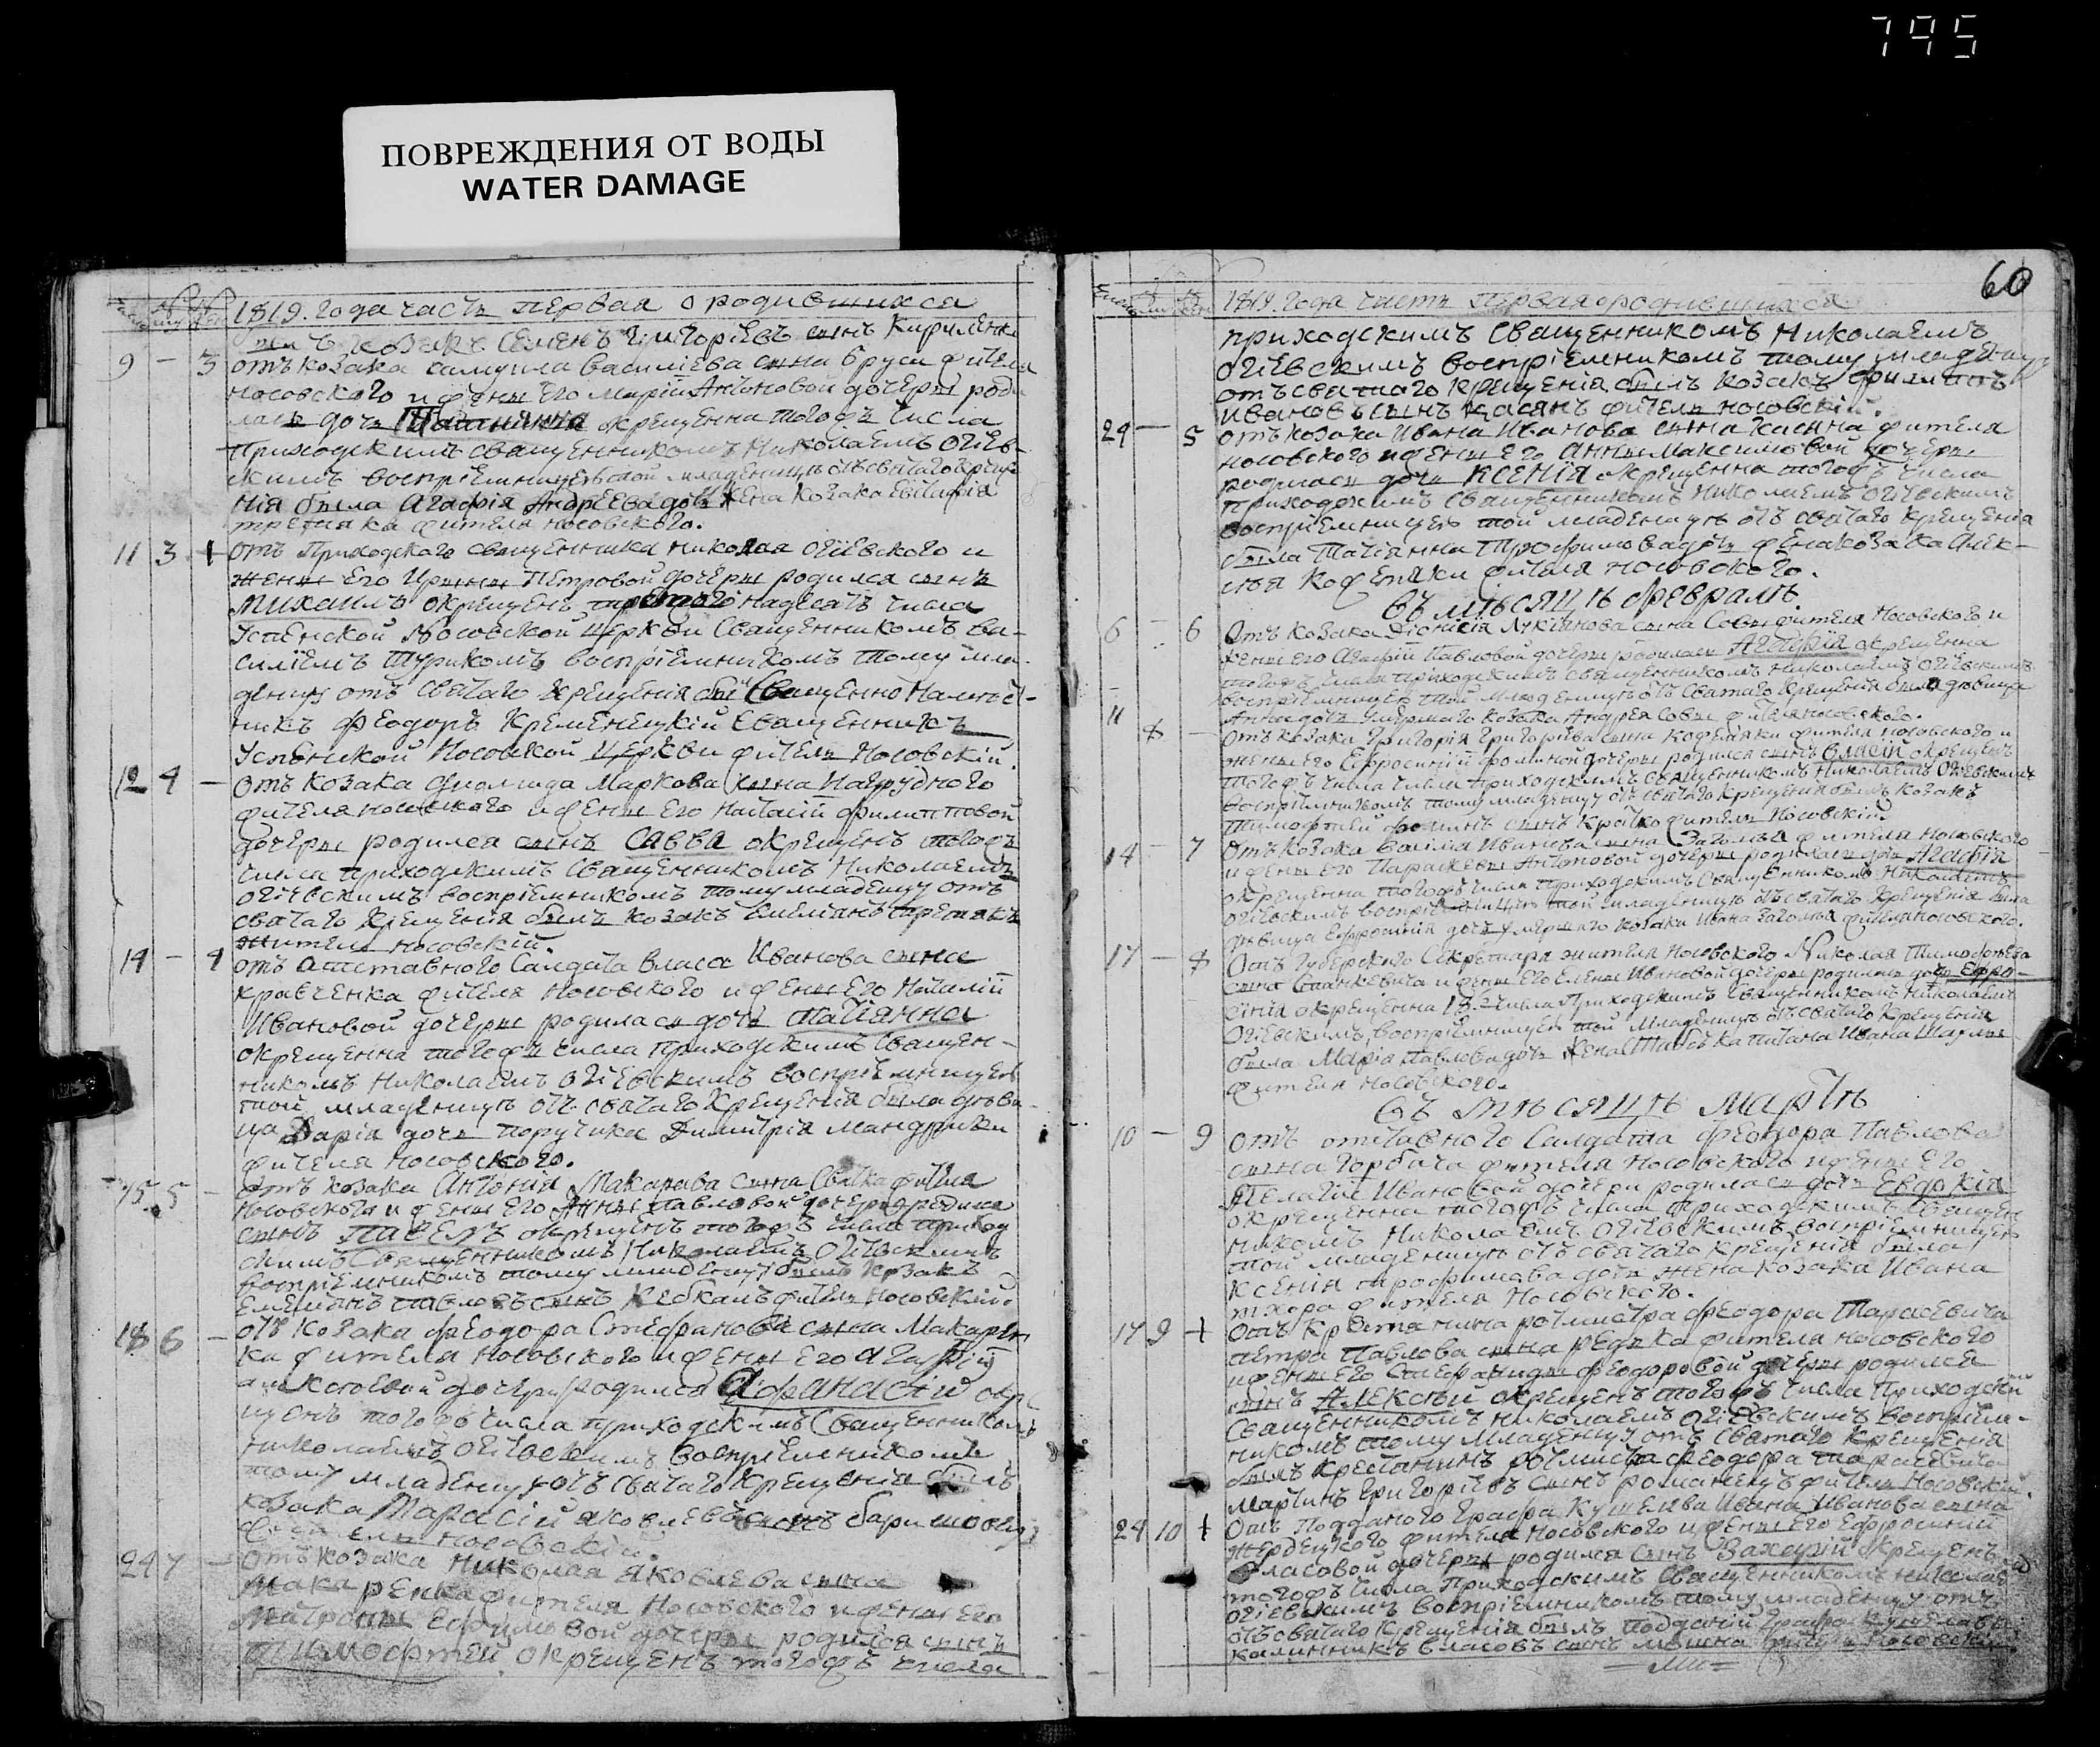 795
ПОВРЕЖДЕНИЯ ОТ ВОДЫ
WATER DAMAGE
1819. года часть первая о родившихся
козакъ Семенъ Григоріевъ сынъ
9 - 3 отъ козака василіева сына жителя
носовского и жены Его маріи Антоновой дочеры роди
лась дочь Татіянна окрещенна тогожъ числа
приходскимъ священникомъ Николаемъ Огіев-
скимъ воспріемницею той младеницы отъ святаго креще
нія была Агафія Андреева дочь жена козака
третяка жителя носовского.
11 3 + отъ приходского священника николая огіевского и
жены Его Ирины Петровой дочеры родился сынъ
михаилъ окрещенъ третого надесять числа
Успенской Носовской церкви Священникомъ ва-
силіемъ Турикомъ воспріемникомъ тому мла-
денцу отъ святаго крещенія Священно Намест-
никъ Феодоръ Кременецкій Священникъ
Успенской Носовской церкви житель Носовскій.
12 4 - отъ козака Маркова сына Нагрудного
жителя носовского и жены Его Наталіи филипповой
дочеры родился сынъ Савва окрещенъ тогожъ
числа приходскимъ Священникомъ Николаемъ
огіевскимъ воспріемникомъ тому младенцу отъ
святаго крещенія былъ козакъ Емеліянъ третякъ
житель носовскій.
14 - 4 отъ отставного Салдата власа Иванова сына
кравченка жителя носовского и жены Его Наталіи
Ивановой дочеры родилась дочь татіянна
окрещенна тогожъ числа приходскимъ Священ-
никомъ Николаемъ Огіевскимъ воспріемницею
той младеницы отъ святаго крещенія была деви
ца Дарія дочь поручика Димитрія мандрики
жителя носовского.
15 5 - отъ козака Антонія Макарова сына жителя
Носовского и жены Его Анны павловой дочеры родился
сынъ Павелъ окрещенъ тогожъ числа приход
скимъ Священникомъ Николаемъ Огіевскимъ
воспріемникомъ тому младенцу былъ козакъ
Емеліянъ павловъ сынъ житель носовскій.
18 6 - отъ козака Феодора Стефанова сына Макарен
ка жителя носовского и жены Его Агафіи
дочери родился Афанасій окре
щенъ тогожъ числа приходскимъ Священникомъ
николаемъ огіевскимъ воспріемникомъ
тому младенцу отъ святаго крещенія былъ
козака Тарасій яковлевъ сынъ
житель носовскій.
24 7 - отъ козака николая яковлева сына
макаренка жителя Носовского и жены его
матроны Ефимовой дочеры родился сынъ
тимофтей окрещенъ тогожъ числа
60
1819. года часть первая о родившихся
приходскимъ Священникомъ Николаемъ
огіевскимъ воспріемникомъ тому младенцу
отъ святаго крещенія былъ козакъ филиппъ
Ивановъ сынъ касянъ житель носовскій.
29 - 5 отъ козака Ивана Иванова сына касяна жителя
носовского и жены Его Анны Максимовой дочеры
родилась дочь Ксенія окрещенна тогожъ числа
приходскимъ Священникомъ николаемъ огіевскимъ
воспріемницею той младеницы отъ святаго крещенія
была Татіянна Трофимова дочь жена козака Алек-
сія жителя носовского.
въ месяце феврале.
6 - 6 Отъ козака Діонисія Лукіанова сына Совы жителя Носовского и
жены его Агафіи Павловой дочеры родилась окрещенна
тогожъ числа приходскимъ священникомъ николаемъ огіевскимъ
воспріемницею той младеницы отъ святаго крещенія была девица
Анна дочь умершаго козака Андрея Совы жителя носовского.
11 8 - отъ козака Григорія Григоріева сына жителя носовского и
жены его Ефросиніи Фоминой дочеры родился сынъ Власій окрещенъ
тогожъ числа приходскимъ Священникомъ Николаемъ Огіевскимъ
воспріемникомъ тому младенцу отъ святаго крещенія былъ козакъ
Тимофтей Фоминъ сынъ житель Носовскій.
14 - 7 Отъ козака василія Иванова сына жителя носовского
и жены Его Параскевы Антоновой дочеры родилась дочь Агафія
окрещенна тогожъ числа приходскимъ Священникомъ Николаемъ
огіевскимъ воспріемницею той младеницы отъ святаго крещенія была
девица Ефросинія дочь умершаго козака Ивана жителя носовского.
17 - 8 Отъ Губерского Секретаря жителя Носовского Николая Тимофтеева
сына и жены Его Елены Ивановой дочеры родилась дочь Ефро-
синія окрещенна числа приходскимъ Священникомъ Николаемъ
Огіевскимъ, воспріемницею той младеницы отъ святаго крещенія
была Марія Павлова дочь жена Штабсъ капитана Ивана
жителя носовского.
въ месяце марте
10 - 9 отъ отставного Салдата Феодора Павлова
сына Горбача жителя Носовского и жены Его
Пелагіи Ивановой дочери родилась дочь Евдокія
окрещенна тогожъ числа приходскимъ Священ
никомъ Николаемъ огіевскимъ воспріемницею
той младеницы отъ святаго крещенія была
Ксенія трофимова дочь жена козака Ивана
тхора жителя Носовского.
17 9 + Отъ крестянина ротмистра Феодора Тарасевича
петра Павлова сына редька жителя носовского
и жены Его Стефаниды Феодоровой дочеры родился
сынъ Алексій окрещенъ тогожъ числа приходскимъ
Священникомъ николаемъ огіевскимъ воспріем-
никомъ тому младенцу отъ святаго крещенія
былъ крестянинъ ротмистра Феодора тарасевича
Мартинъ Григоріевъ сынъ романецъ житель Носовскій.
24 10 + Отъ Подданого Графа Кушелева Ивана Иванова сына
жердецкого жителя носовского и жены Его Ефросиніи
власовой дочеры родился сынъ Захарій окрещенъ
тогожъ числа приходскимъ священникомъ николаемъ
огіевскимъ воспріемникомъ тому младенцу отъ
отъ святаго крещенія былъ подданій Графа Кушелева
калинникъ власовъ сынъ житель Носовскій